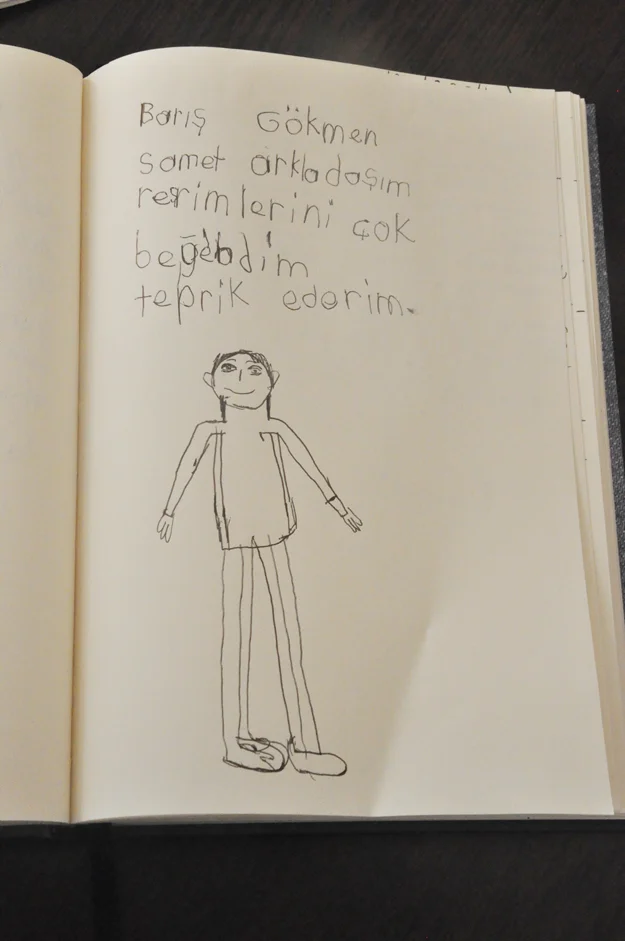 Barış Gökmen
samet arkladaşım
resimlerini çok
beğebdim
teprik ederim.